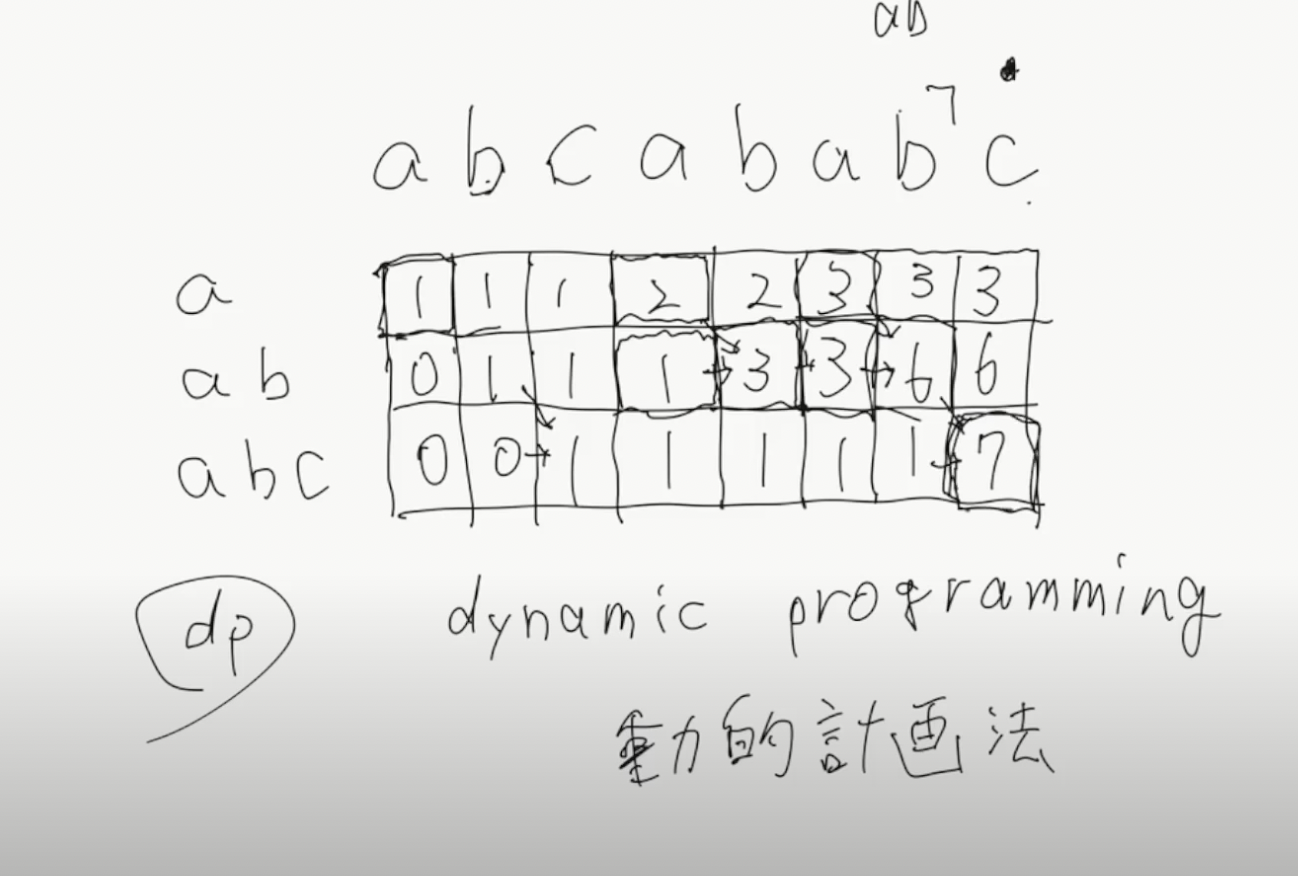 ab
7
a b c a b a b c
a 1 1 1 2 2 3 3 3
ab 0 1 1 1 3 3 6 6
abc 0 0 1 1 1 1 1 7
dp dynamic programming
動的計画法